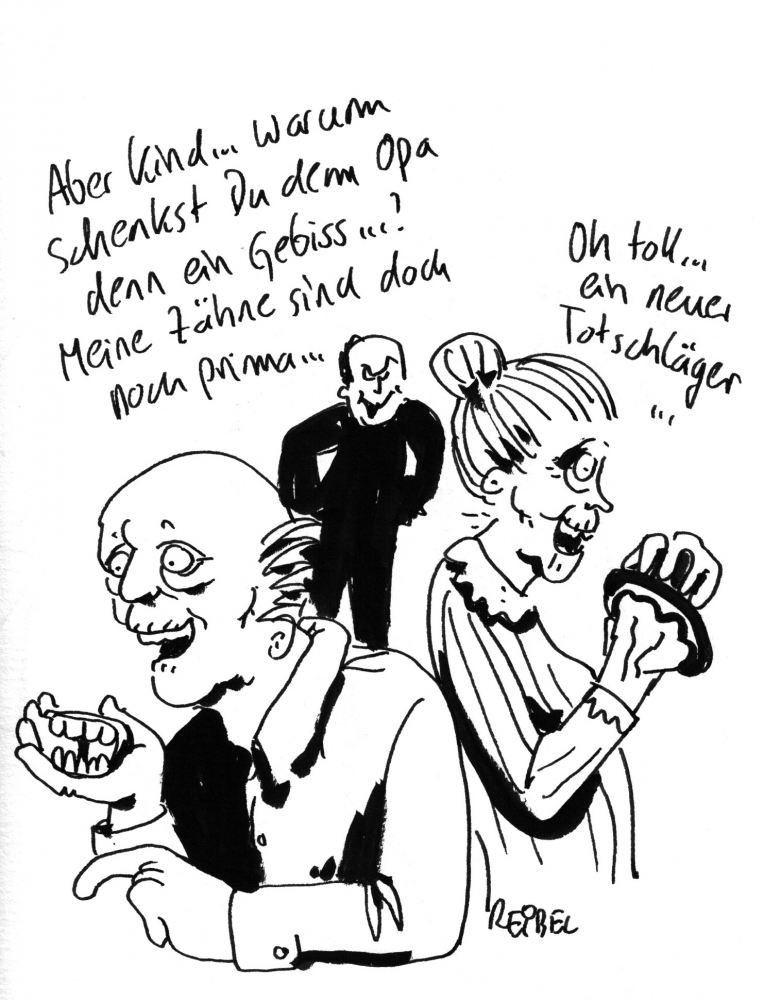 Aber Kind... warum
schenkst Du denn Opa
denn ein Gebiss...?
Meine Zähne sind doch
noch prima...
Oh toll...
ein neuer
Totschläger
...
REIBEL